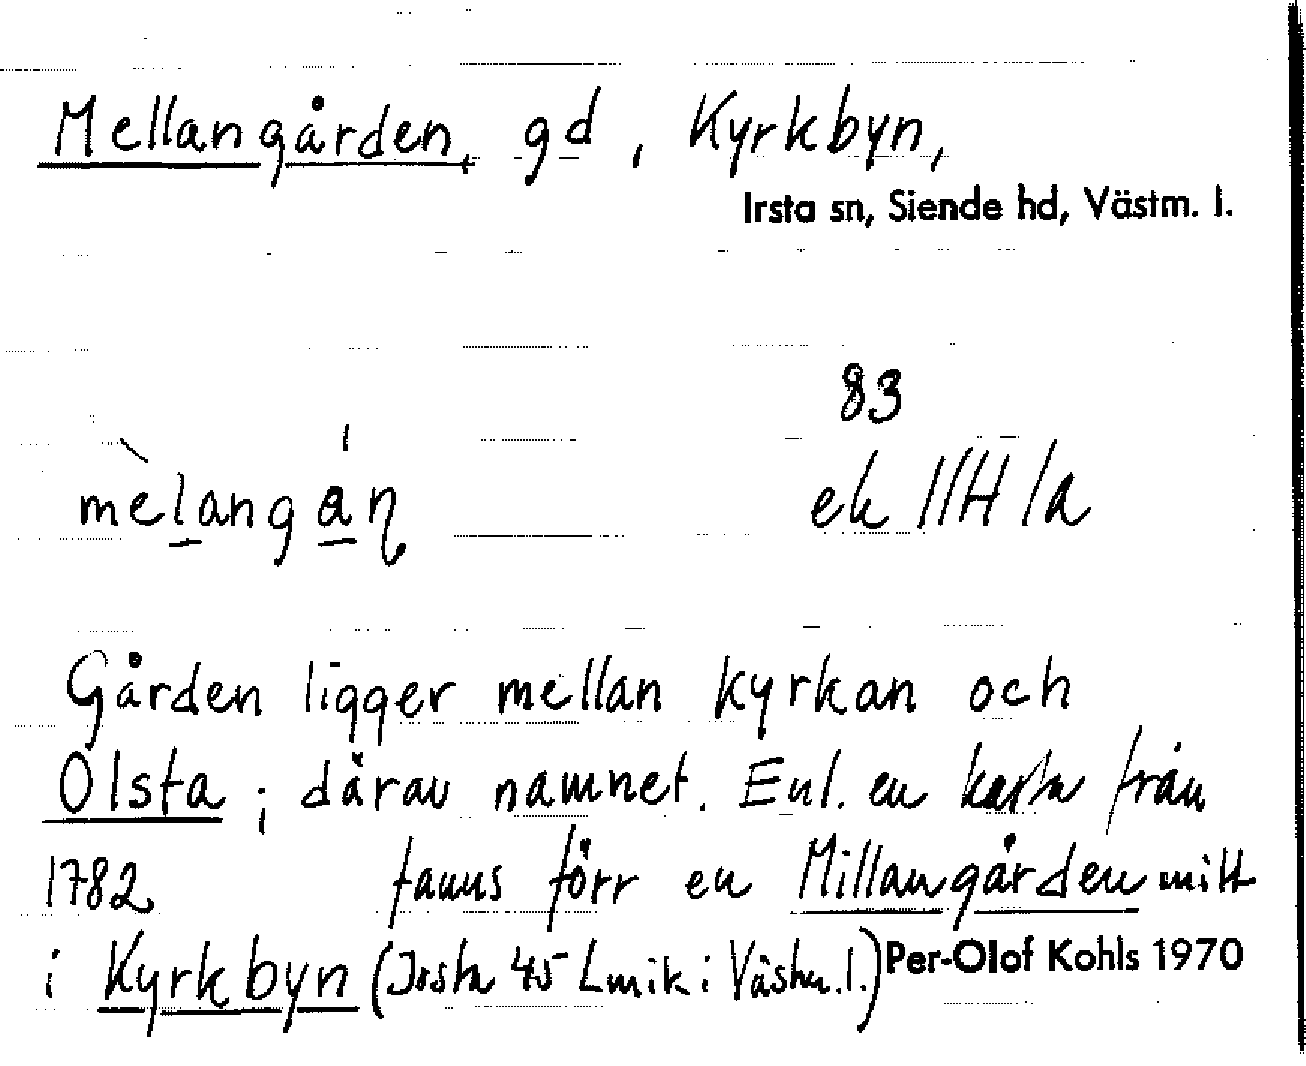 Mellangården, gd, Kyrkbyn,
Irsta sn, Siende hd, Västm. l.
83
mèlangán ek 11H 1a
Gården ligger mellan kyrkan och
Olsta; därav namnet. Enl. en karta från
1782 fanns förr en Millangården mitt
i Kyrkbyn (Irsta 45 Lmik i Västm. l.) Per-Olof Kohls 1970